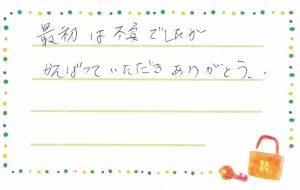 最初は不安でしたが
がんばっていただきありがとう..